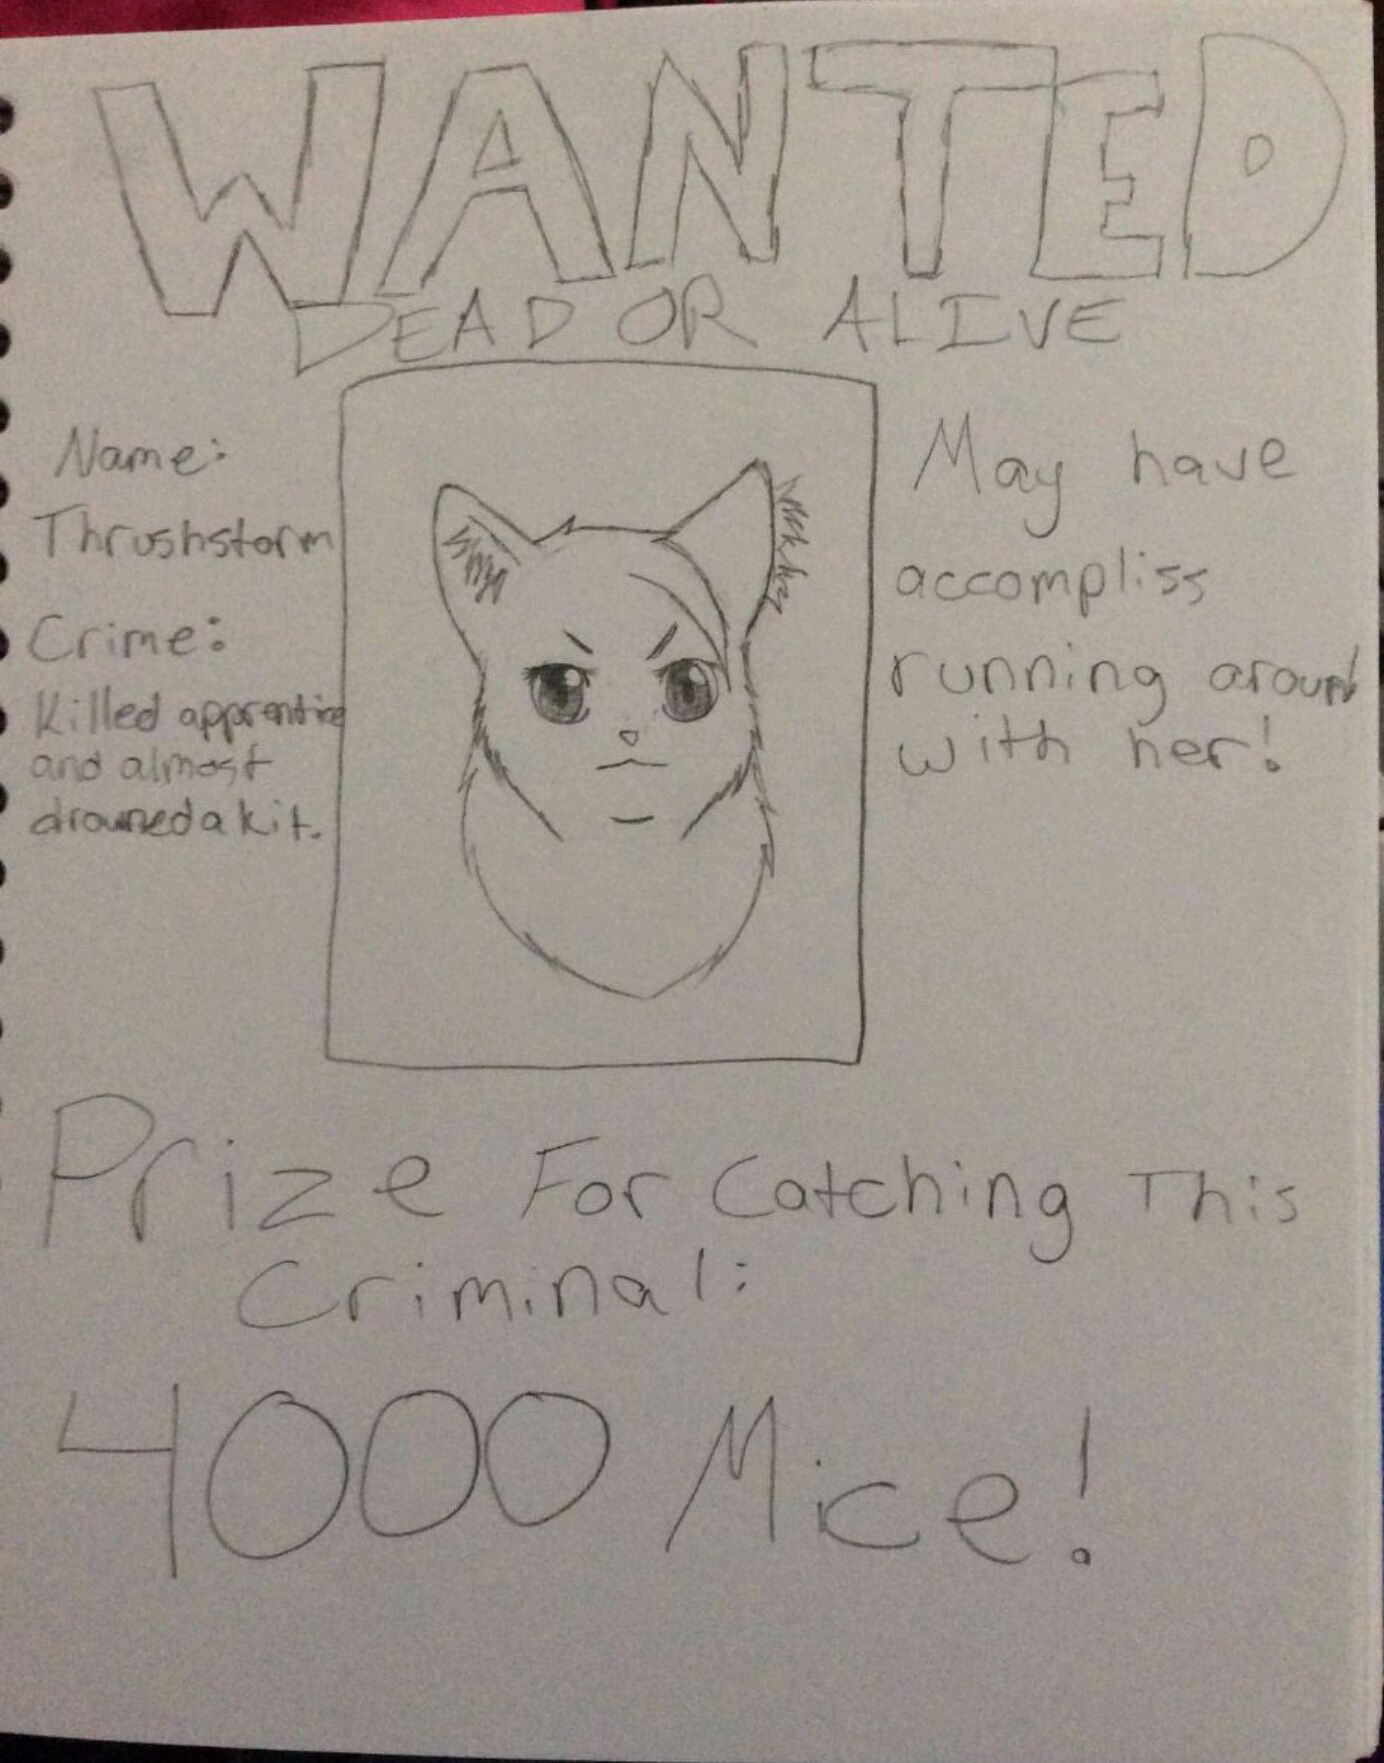 WANTED
DEAD OR ALIVE
Name:
Thrushstorm
Crime:
Killed apprentice
and almost
drowned a kit.
May have
accompliss
running around
with her!
Prize For Catching This
Criminal:
4000 Mice!